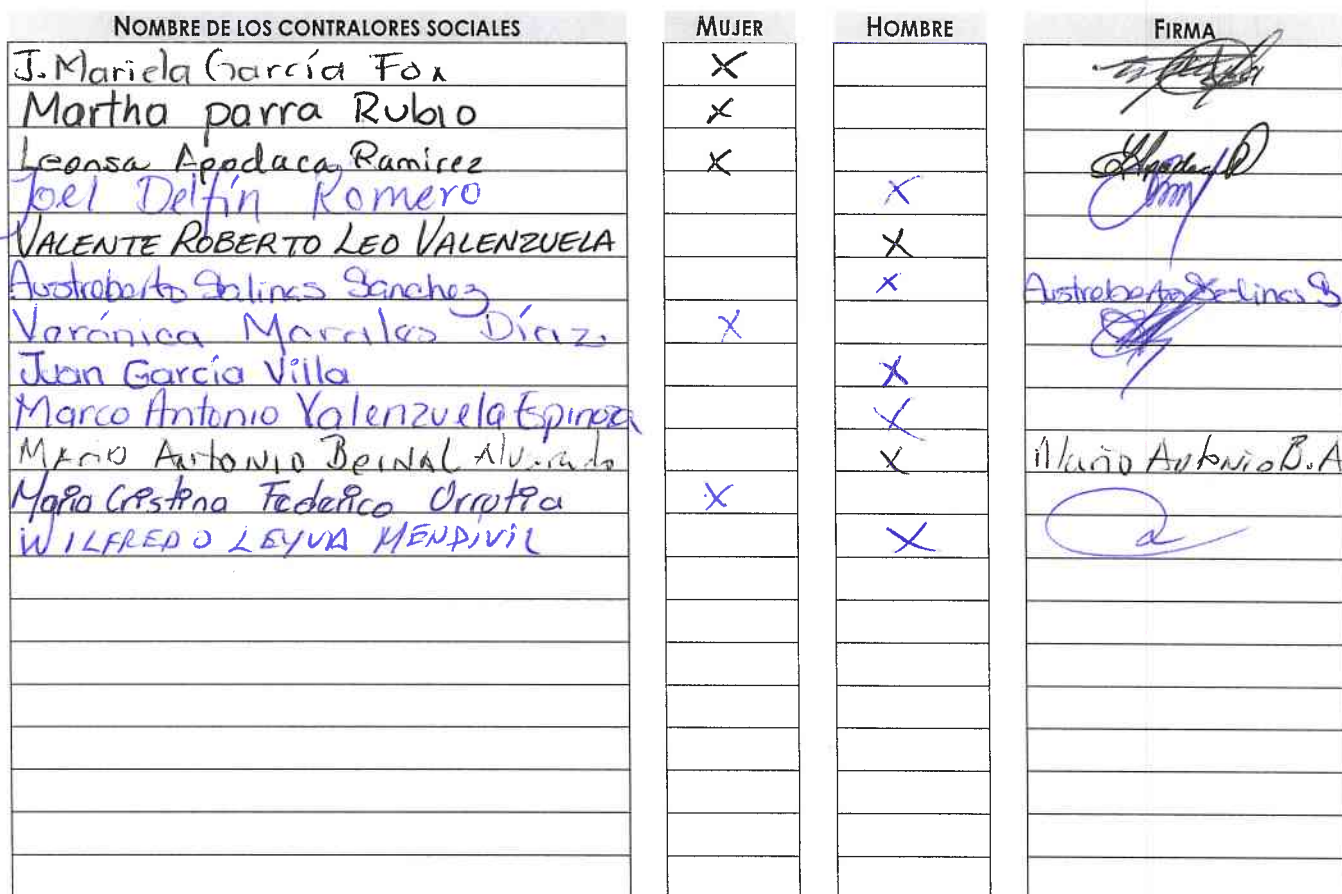 NOMBRE DE LOS CONTRALORES SOCIALES MUJER HOMBRE FIRMA
J. Mariela García Fox X
Martha parra Rubio X
Leonsa Apodaca Ramirez X
Joel Delfín Romero X
VALENTE ROBERTO LEO VALENZUELA X
Austroberto Salinas Sanchez X Austroberto Salinas S
Verónica Morales Díaz. X
Juan García Villa X
Marco Antonio Valenzuela Espinoza X
Mario Antonio Bernal Alvarado X Mario Antonio B.A
Maria Cristina Federico Urrutia X
WILFREDO LEYVA MENDIVIL X